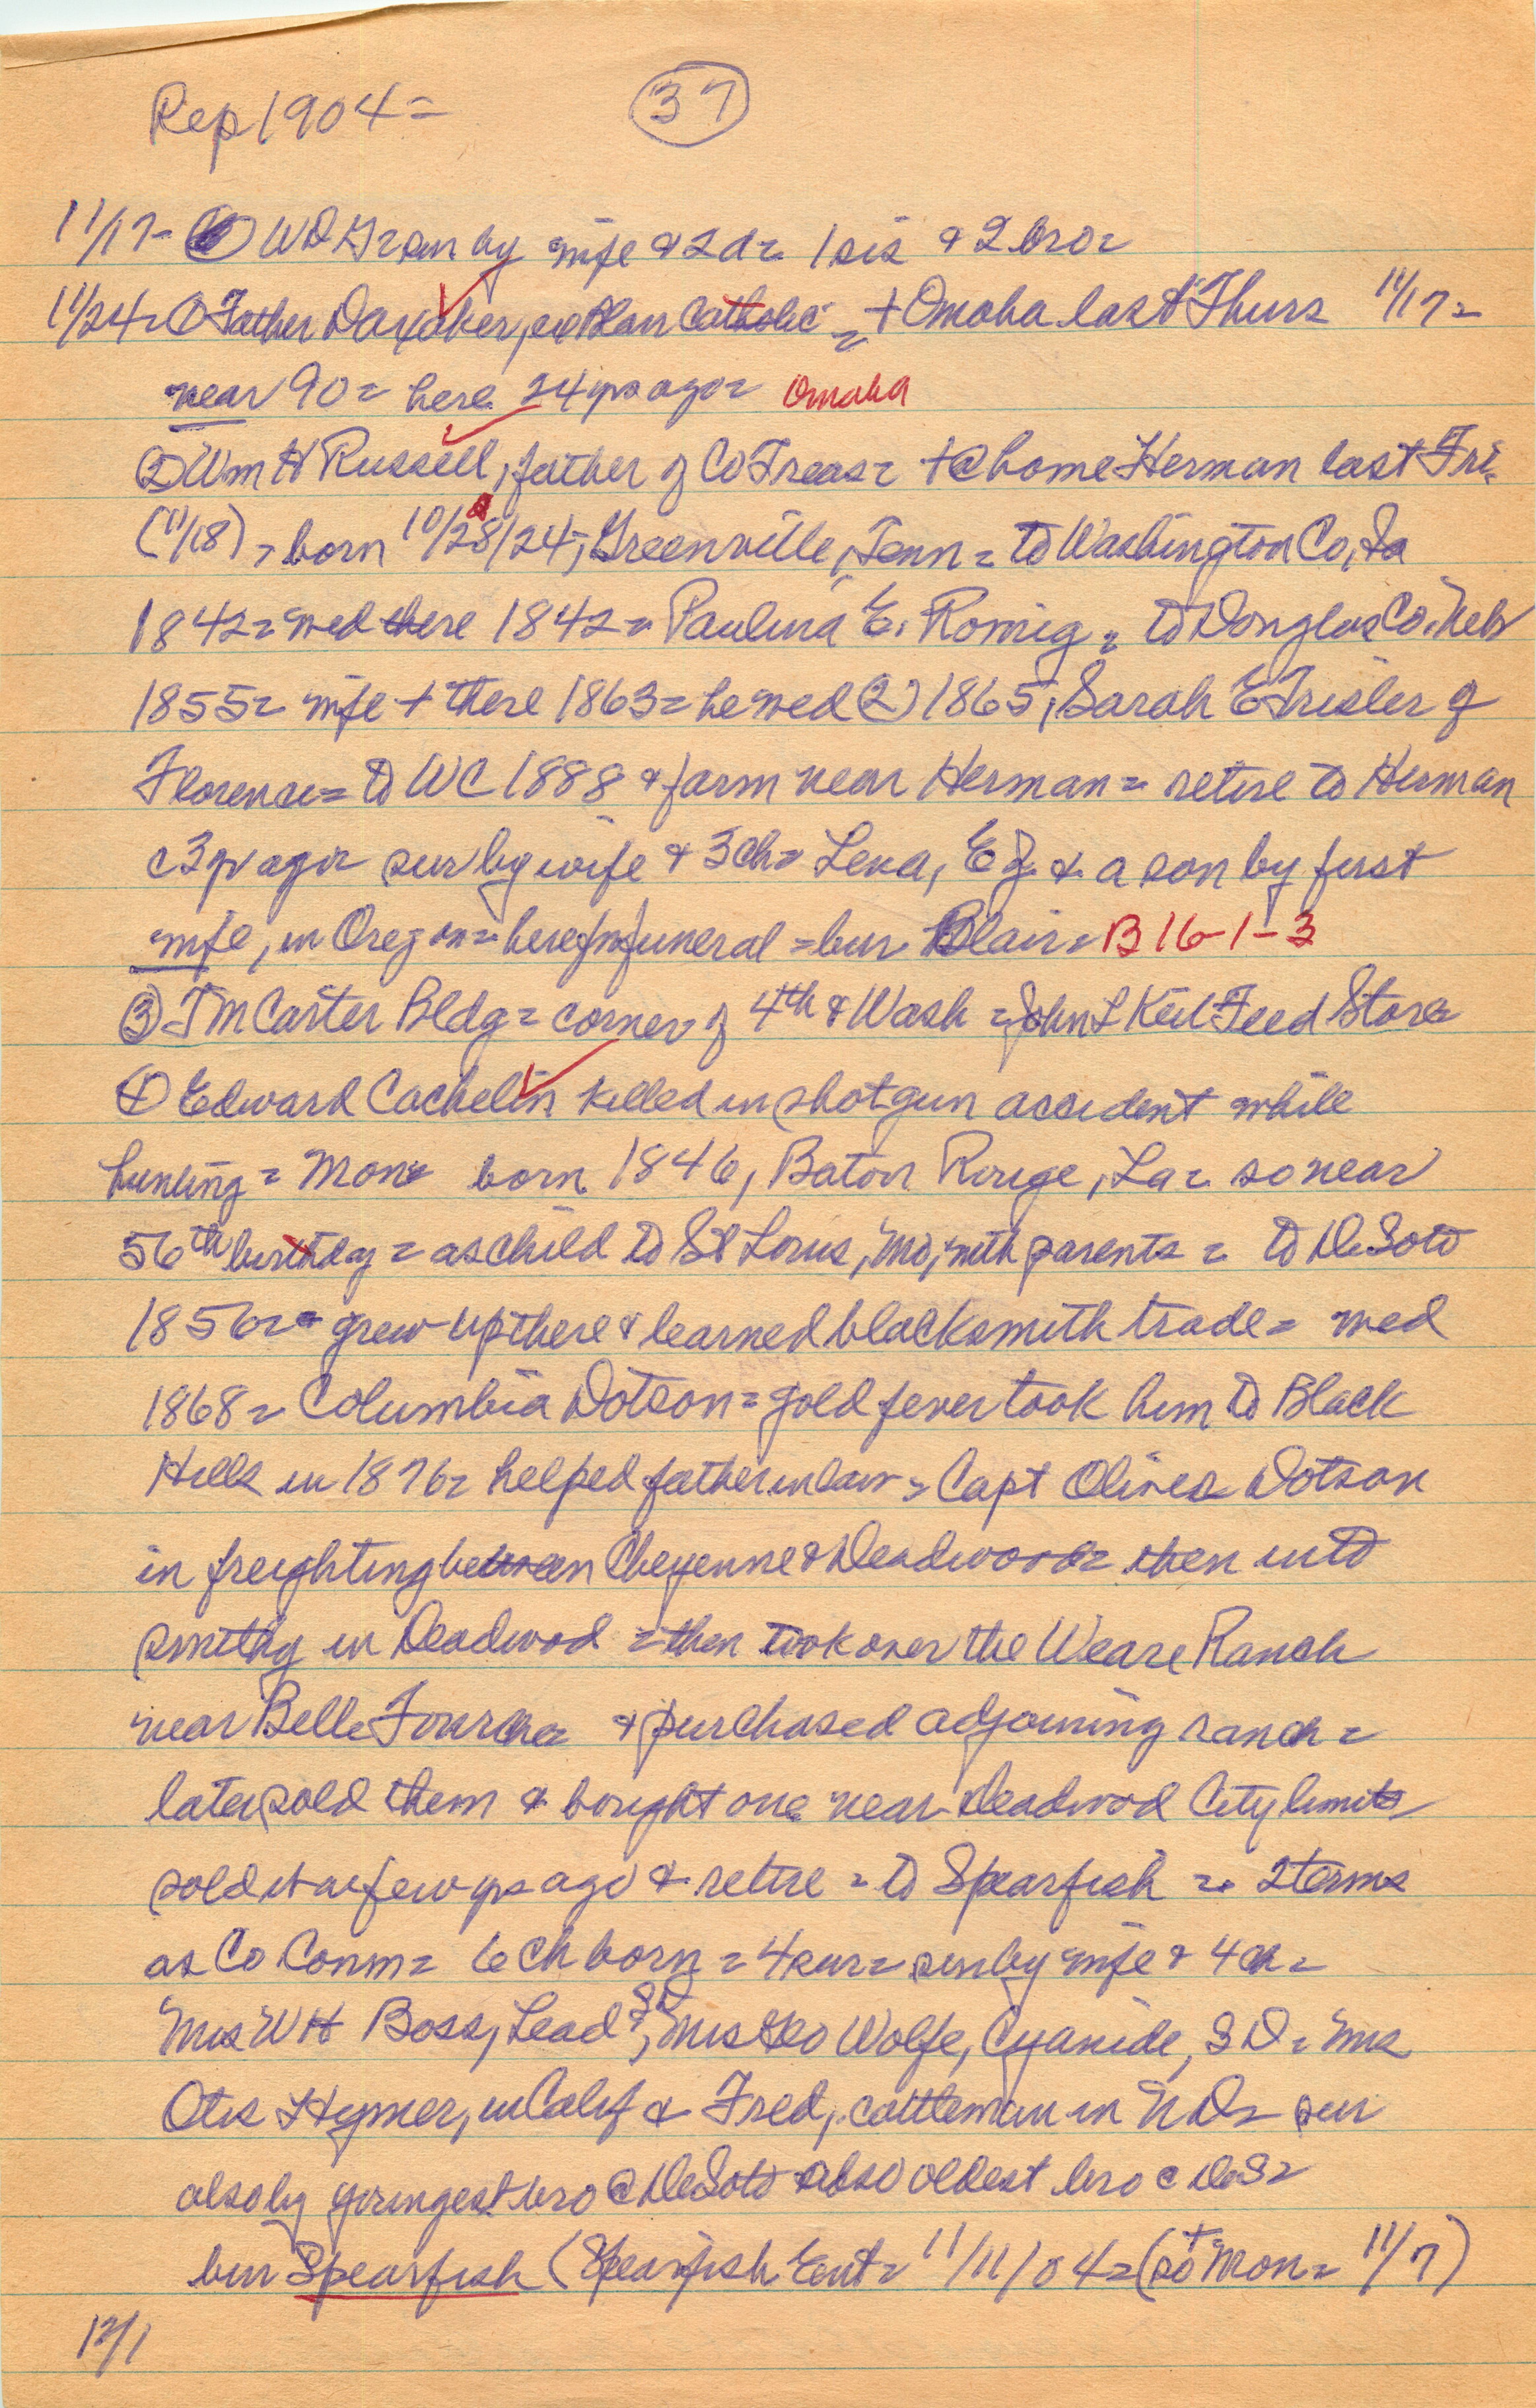 Rep 1904= 37
11/17- ① WD Gr sur by wife & 2d= 1 sis & 2 bro=
11/24= ① Father Daxaker, ex Blair Catholic = + Omaha last Thurs 11/17=
near 90= here 24 yrs ago= Omaha
② Wm H Russell, father of Co Treas= +@home Herman last Fri.
(11/18) = born 10/28/24, Greenville, Tenn= to Washington Co, Ia
1842= wed there 1842= Paulina E. Romig= to Douglas Co. Neb
1855= wife + there 1863= he wed (2) 1865, Sarah E Frisler of
Florence= to WC 1888 & farm near Herman= retire to Herman
c3 yr ago= sur by wife & 3 ch= Lena, E J & a son by first
wife, in Oregon= here for funeral = bur Blair= B16-1-3
③ JM Carter Bldg= corner of 4th & Wash = John L Keil Feed Store
④ Edward Cachelin killed in shotgun accident while
hunting = Mon= born 1846, Baton Rouge, La= so near
56th birthday = as child to St Louis, Mo, with parents = to DeSoto
1856= grew up there & learned blacksmith trade= wed
1868= Columbia Dotson= gold fever took him to Black
Hills in 1876= helped father in law = Capt Oliver Dotson
in freighting between Cheyenne & Deadwood= then into
smithy in Deadwood = then took over the Weare Ranch
near Belle Fourche= & purchased adjoining ranch=
later sold them & bought one near Deadwood City limits
sold it a few yrs ago & retire = to Spearfish = 2 terms
as Co Comm= 6 ch born = 4 sur= sur by wife & 4 ch=
Mrs WH Boss, Lead, SD, Mrs Geo Wolfe, Cyanide, SD= Mrs
Otis Hymer, in Calif & Fred, cattleman in ND= sur
also by youngest bro @ DeSoto also oldest bro @ DeS=
bur Spearfish (Spearfish Ent= 11/11/04= (so + Mon= 11/7)
12/1